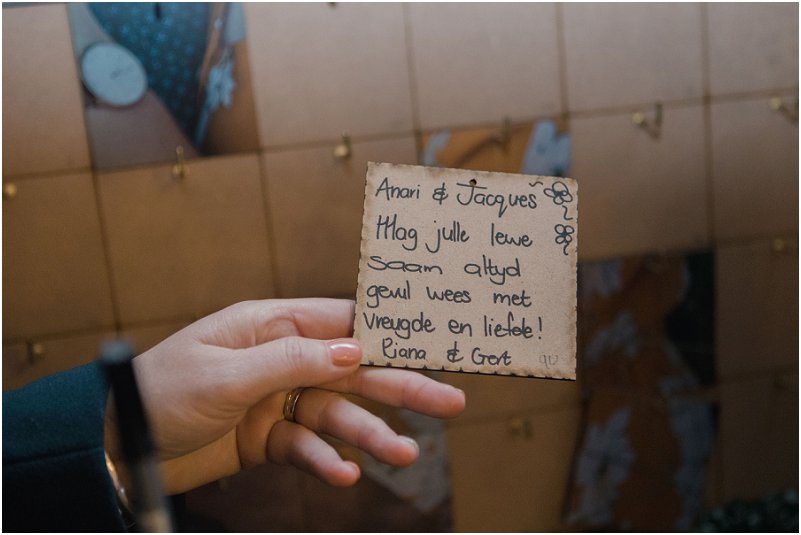 Anari & Jacques
Mag julle lewe
saam altyd
gevul wees met
vreugde en liefde!
Riana & Gert